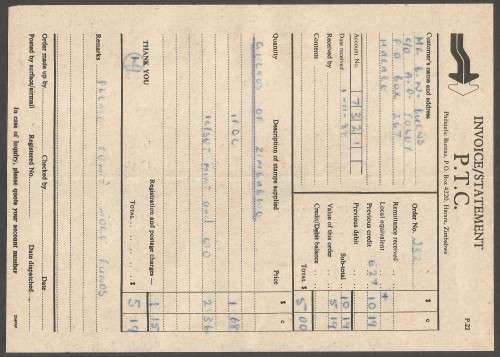 P.22
INVOICE/STATEMENT
P.T.C.
Philatelic Bureau, P.O. Box 4220, Harare, Zimbabwe
Customer's name and address
P.O. BOX 267
HARARE
Account No. 7321
Date received
Received by
Contents
Order No. 332
Remittance received
Local equivalent
Previous credit 10 19
Previous debit
Sub-total 10 19
Value of this order 5 19
Credit/Debit balance
TOTAL $ 5 00
Quantity
Description of stamps supplied
Price
$ c
OF ZIMBABWE
1 FDC 1 68
MINT and CTO 2 36
Registration and postage charges— 1 15
TOTAL 5 19
THANK YOU
Remarks
PLEASE SUBMIT MORE FUNDS
Order made up
Checked by
Date
Posted by surface/airmail
Registered No.
Date dispatched
In case of inquiry, please quote your account number